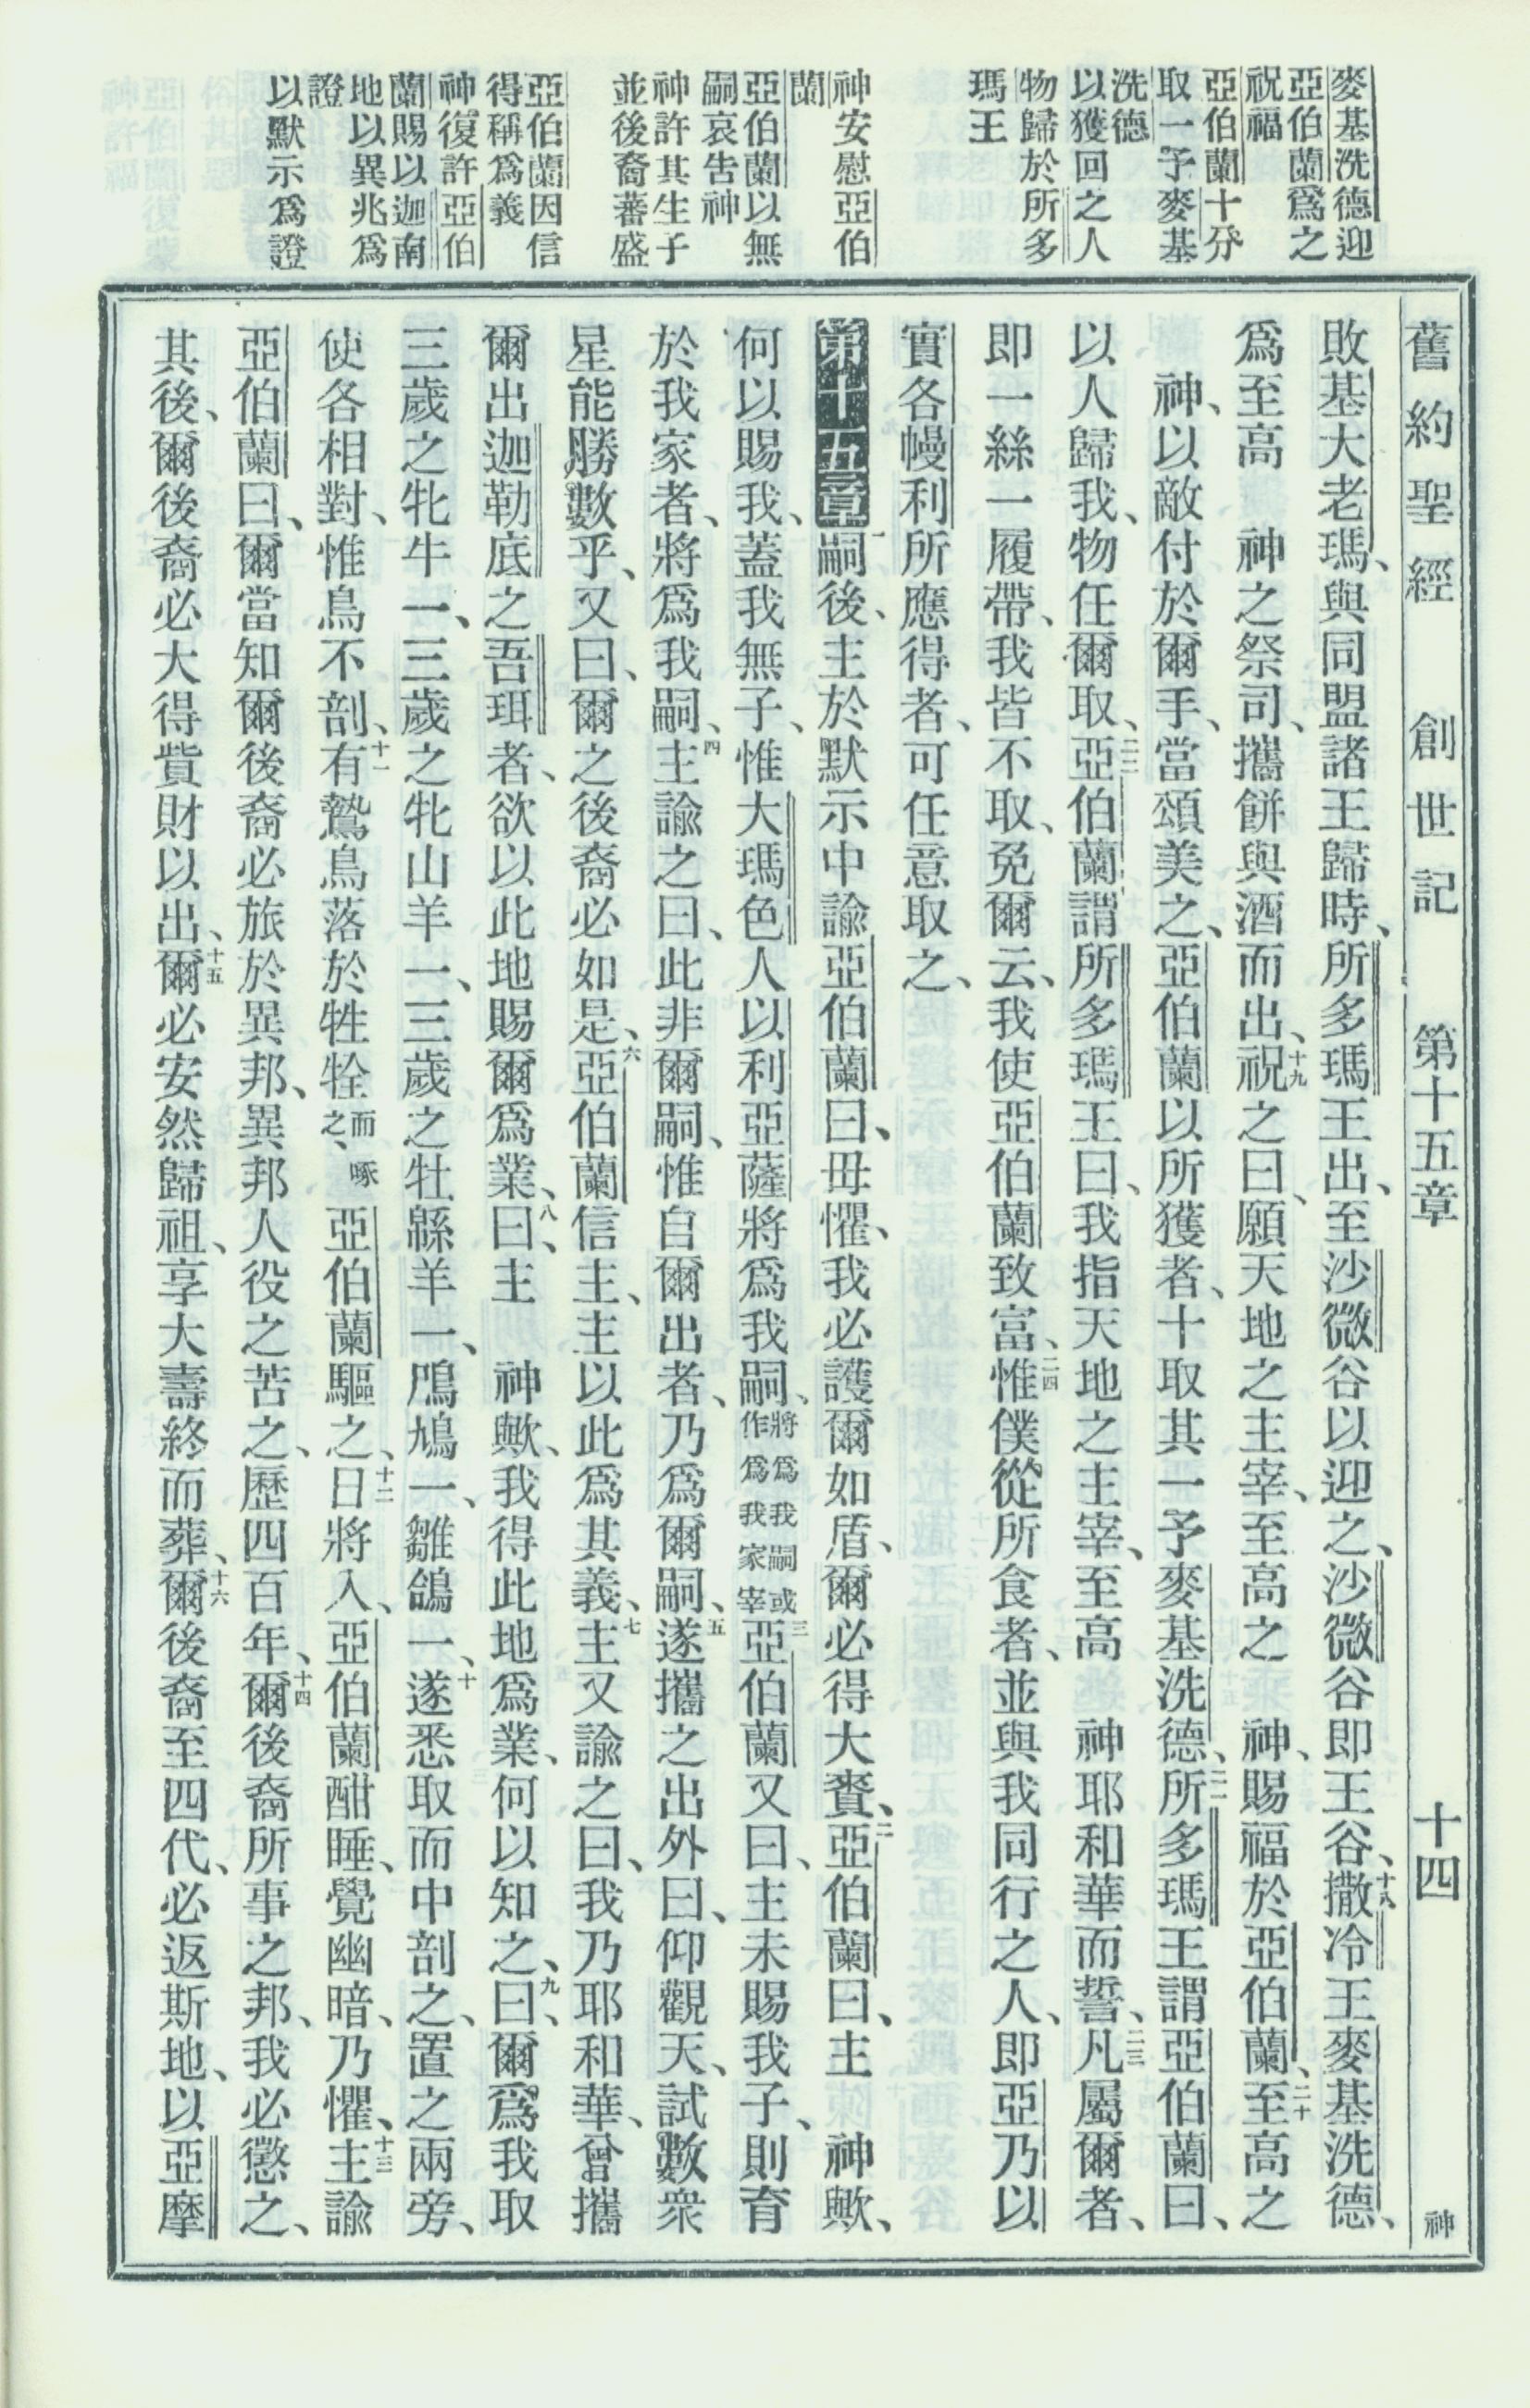 舊約聖經 創世記 第十五章 十四 神
麥基洗德迎
亞伯蘭爲之
祝福
亞伯蘭十分
取一予麥基
洗德
以獲回之人
物歸於所多
瑪王
神安慰亞伯
蘭
亞伯蘭以無
嗣哀告神
神許其生子
並後裔蕃盛
亞伯蘭因信
得稱爲義
神復許亞伯
蘭賜以迦南
地以異兆爲
證
以默示爲證
敗基大老瑪、與同盟諸王歸時、所多瑪王出、至沙微谷以迎之、沙微谷即王谷、十八撒冷王麥基洗德、
爲至高 神之祭司、攜餅與酒而出、十九祝之曰、願天地之主宰、至高之 神、賜福於亞伯蘭、二十至高之
神、以敵付於爾手、當頌美之、亞伯蘭以所獲者、十取其一予麥基洗德、二一所多瑪王謂亞伯蘭曰、
以人歸我、物任爾取、二二亞伯蘭謂所多瑪王曰、我指天地之主宰、至高 神耶和華而誓、二三凡屬爾者、
即一絲一履帶、我皆不取、免爾云、我使亞伯蘭致富、二四惟僕從所食者、並與我同行之人、即亞乃以
實各幔利所應得者、可任意取之、
第十五章一嗣後、主於默示中諭亞伯蘭曰、毋懼、我必護爾如盾、爾必得大賚、二亞伯蘭曰、主 神歟、
何以賜我、蓋我無子、惟大瑪色人以利亞薩將爲我嗣、將爲我嗣或作爲我家宰三亞伯蘭又曰、主未賜我子、則育
於我家者、將爲我嗣、四主諭之曰、此非爾嗣、惟自爾出者、乃爲爾嗣、五遂攜之出外曰、仰觀天、試數衆
星能勝數乎、又曰、爾之後裔必如是、六亞伯蘭信主、主以此爲其義、七主又諭之曰、我乃耶和華、曾攜
爾出迦勒底之吾珥者、欲以此地賜爾爲業、八曰、主 神歟、我得此地爲業、何以知之、九曰、爾爲我取
三歲之牝牛一、三歲之牝山羊一、三歲之牡緜羊一、鳲鳩一、雛鴿一、十遂悉取而中剖之、置之兩旁、
使各相對、惟鳥不剖、十一有鷙鳥落於牲牷而啄之、亞伯蘭驅之、十二日將入、亞伯蘭酣睡、覺幽暗、乃懼、十三主諭
亞伯蘭曰、爾當知爾後裔必旅於異邦、異邦人役之苦之、歷四百年、十四爾後裔所事之邦、我必懲之、
其後、爾後裔必大得貲財以出、十五爾必安然歸祖、享大壽終而葬、十六爾後裔至四代、必返斯地、以亞摩